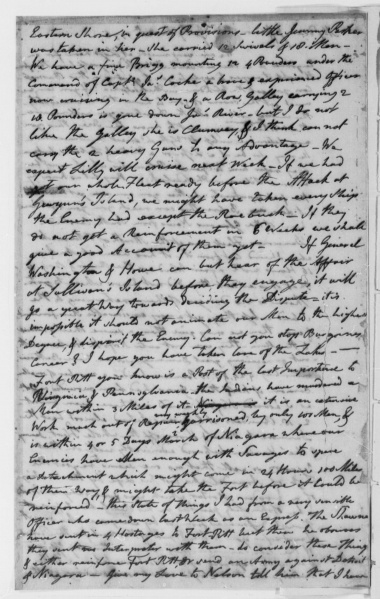 Eastern Shore, in quest of Provisions - little Jemmy Parker
was taken in her - She carried 12 Swivels & 18 Men -
We have a fine Brigg mounting 12 4 Pounders under the
Command of Capt. Jas. Cocke a brave & experienced officer
now cruising in the Bay - & a Row Galley carrying 2
18 Pounders is gone down Jas. River - but I do not
like the Galley she is Clumsey, & I think can not
carry the 2 heavy Guns to any Advantage - We
expect Lilly will cruise next Week - If we had
got our whole Fleet ready before the Attack at
Gwynn's Island, we might have taken every Ship
the Enemy had except the Roe buck - If they
do not get a Reinforcement in 6 Weeks we shall
give a good Account of them yet - If General
Washington & Howe can but hear of the Affair
at Sullivan's Island before they engage, it will
go a great Way towards deciding the Dispute - it is
impossible it should not animate our Men to the highest
Degree, & dispirit the Enemy. Can not you stop Burgoine's
Career? I hope you have taken Care of the Lakes -
Fort Pitt you know is a Post of the last Importance to
Virginia & Pennsylvania the Indians have murdered a
Man within 3 Miles of it - it is an extensive
Work much out of Repair garrisoned by only 100 Men &
is within 4 or 5 Days March of Niagara where our
Enemies have Men enough with Savages to spare
a Detachment which might come in 24 Hours 100 Miles
of their Way & might take the Fort before it could be
reinforced - This State of things I had from a very sensible
Officer who came down last Week as an Express. The Shawnese
have sent in 4 Hostages to Fort Pitt but then he observes
they sent our Interpreter with them - do consider these Things
& either reinforce Fort Pitt or send an Army against Detroit
& Niagara - Give my Love to Nelson tell him that I have